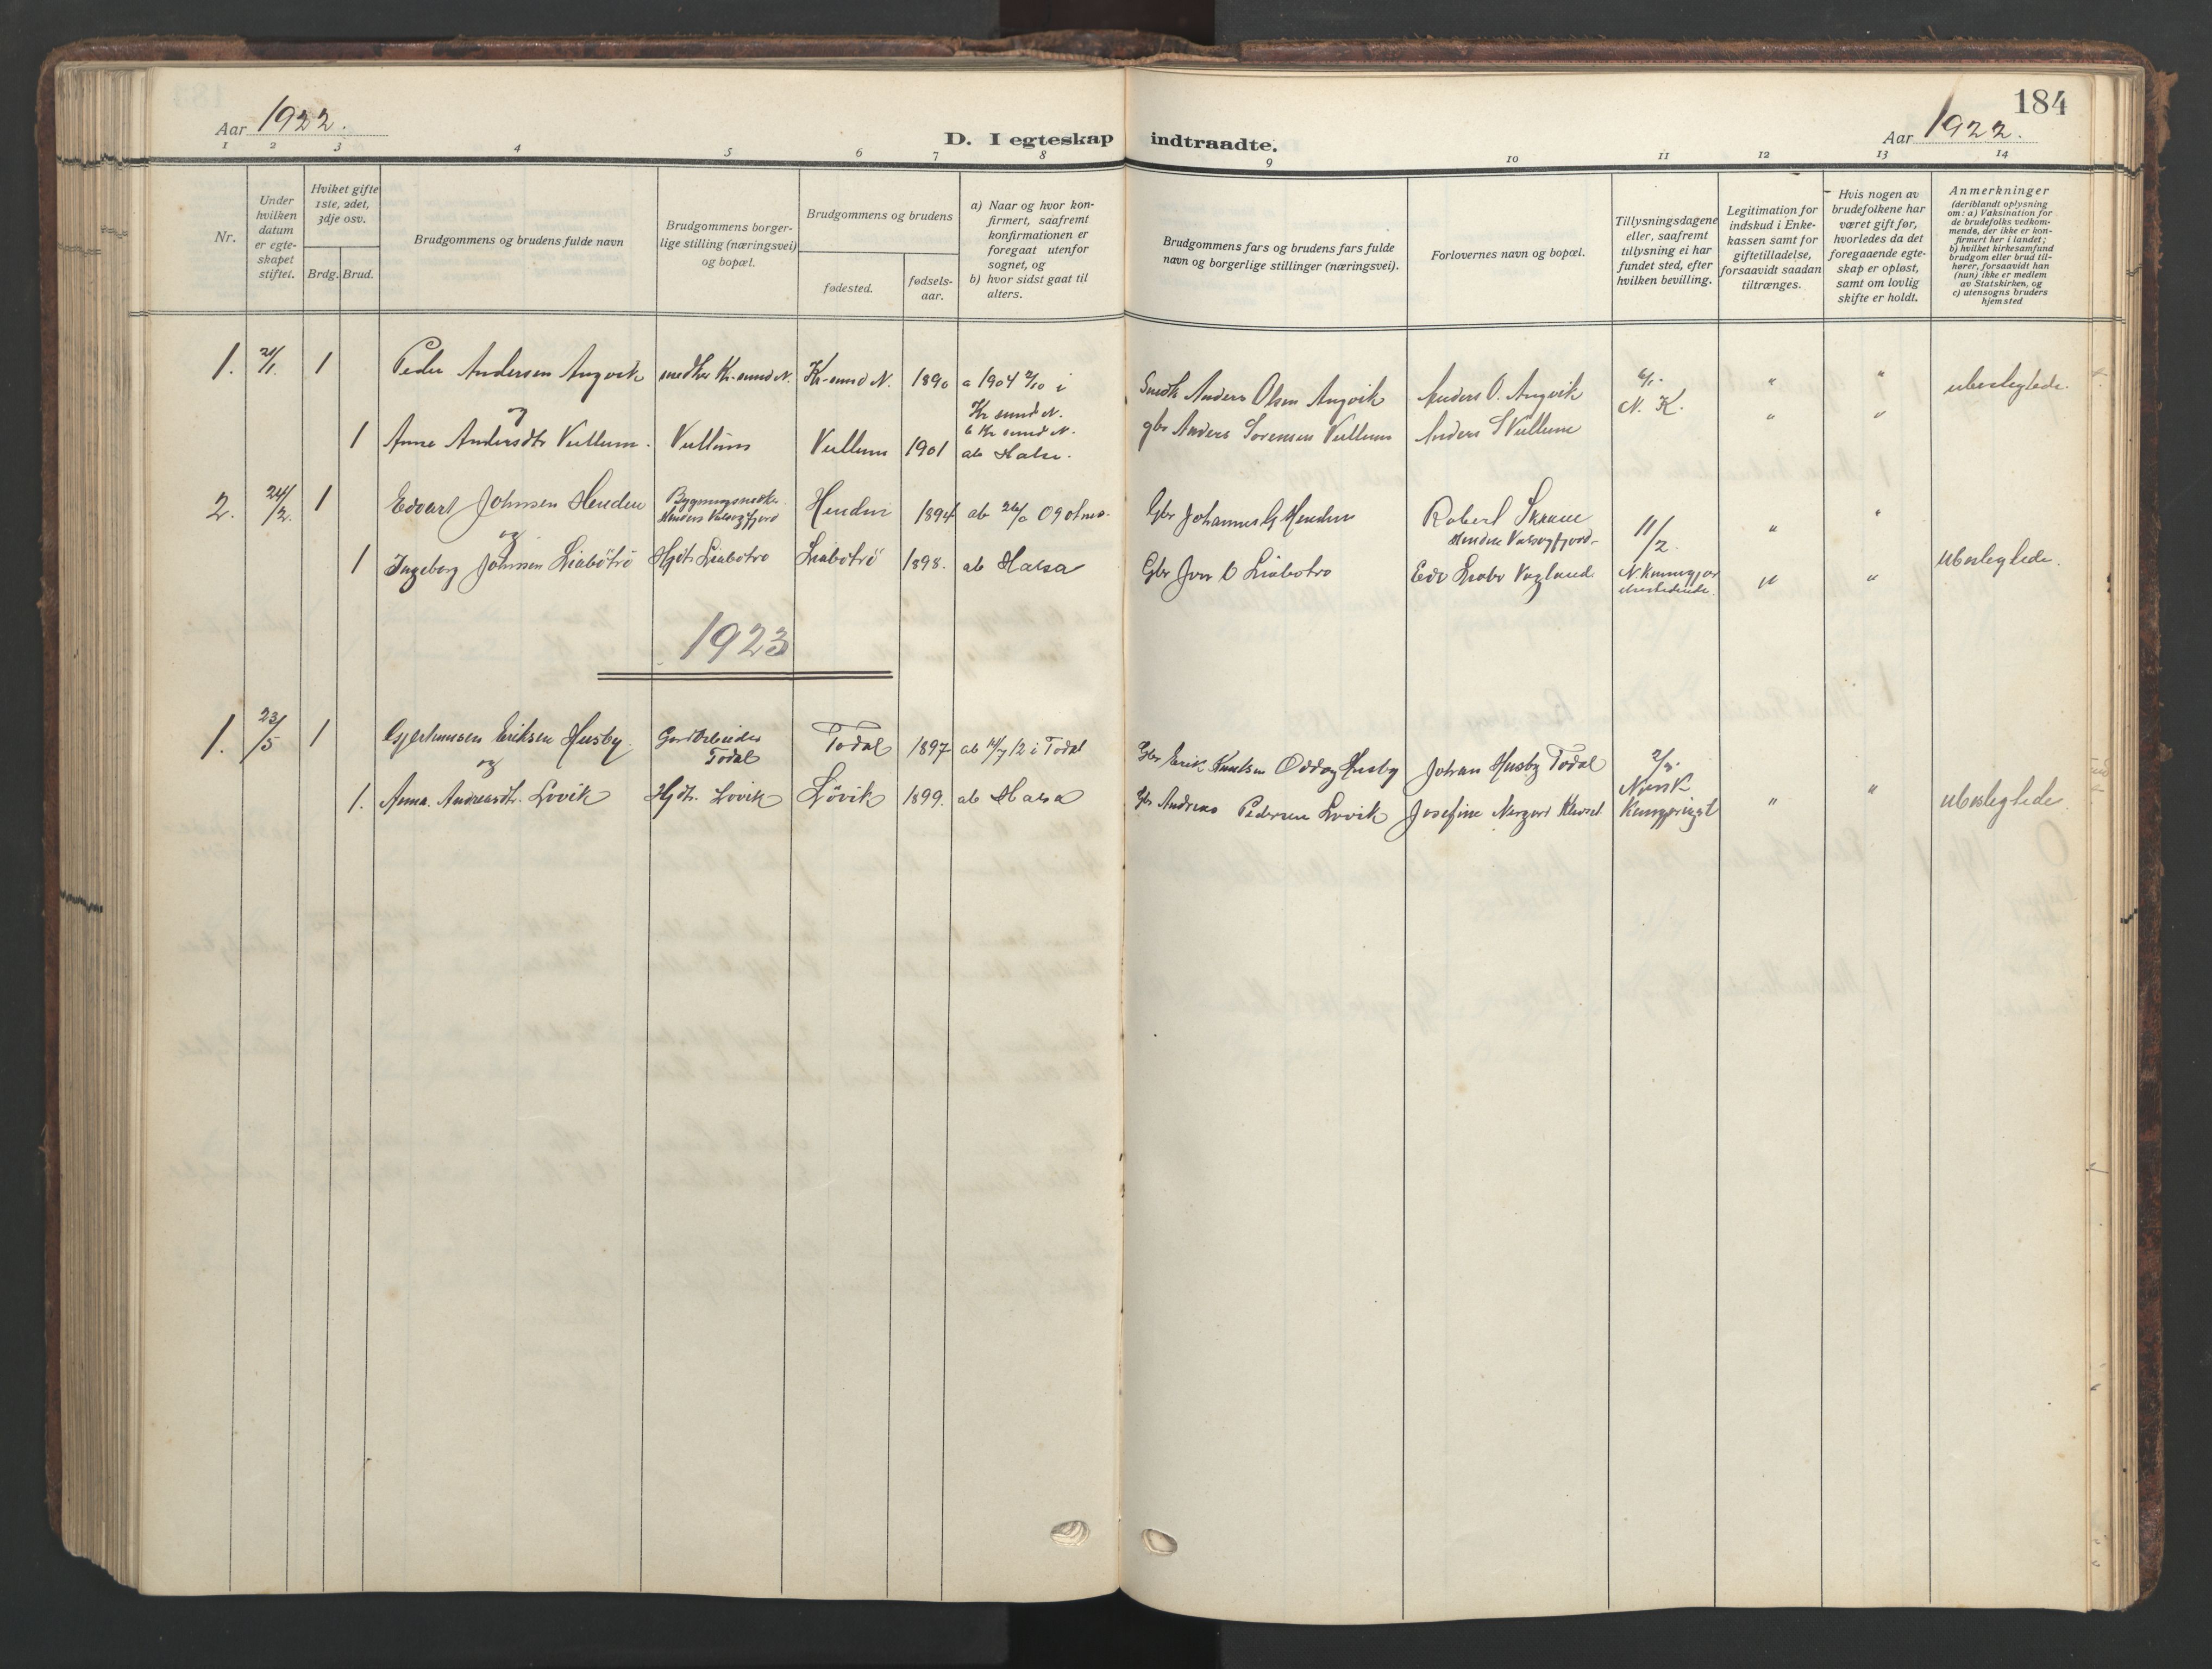 184
Aar 1922.
D. I egteskap indtraadte.
Aar 1922.
1 2 3 4 5 6 7 8 9 10 11 12 13 14
Nr.
Under hvilken datum er egteskapet stiftet.
Hviket gifte 1ste, 2det, 3dje osv.
Brdg. Brud.
Brudgommens og brudens fulde navn
Brudgommens borgerlige stilling (næringsvei) og bopæl.
Brudgommens og brudens
fødested.
fødselsaar.
a) Naar og hvor konfirmert, saafremt konfirmationen er foregaat utenfor sognet, og
b) hvor sidst gaat til alters.
Brudgommens fars og brudens fars fulde navn og borgerlige stillinger (næringsvei).
Forlovernes navn og bopæl.
Tillysningsdagene eller, saafremt tillysning ei har fundet sted, efter hvilken bevilling.
Legitimation for indskud i Enkekassen samt for giftetilladelse, forsaavidt saadan tiltrænges.
Hvis nogen av brudefolkene har været gift før, hvorledes da det foregaaende egteskap er opløst, samt om lovlig skifte er holdt.
Anmerkninger (deriblandt oplysning om: a) Vaksination for de brudefolks vedkommende, der ikke er konfirmert her i landet; b) hvilket kirkesamfund brudgom eller brud tilhører, forsaavidt han (hun) ikke er medlem av Statskirken, og c) utensogns bruders hjemsted
1. 1 Peder Andersen Angvik Kr-sund N. Kr-sund N. 1890 a 1904 i Anders Olsen Angvik Anders O. Angvik 6/1. " " ubeslegtede.
og Kr sund N. N. K.
b Kr sund N.
1 Anne Andersdtr Vullum. Vullum Vullum 1901 ab Halsa. gbr Anders Sorensen Vullum Anders S Vullum " "
2. 24/2. 1 Edvart Johnsen Henden Henden Valsøyfjord Henden 1894 ab 09 Gbr Johannes G Henden Robert 11/2. " "
og Henden Valsøyfjord
1 Ingeborg Johnsen Liabötrö Hjdtr Liabotro Liabotrö 1898. ab Halsa Gbr Jon Liabotro Edv Liabo Vagland. " " Ubeslegtede.
1923
1. 23/5 1 Eriksen Husby Todal Todal 1897 ab 12 i Todal Gbr Erik Knutsen Oddøy Husby Johan Husby Todal
og
1. Anna Andreasdtr. Lovik Hjdtr. Lovik Lövik 1899. ab Halsa Gbr Andreas Pedersen Lovik Josefine " " ubeslegtede